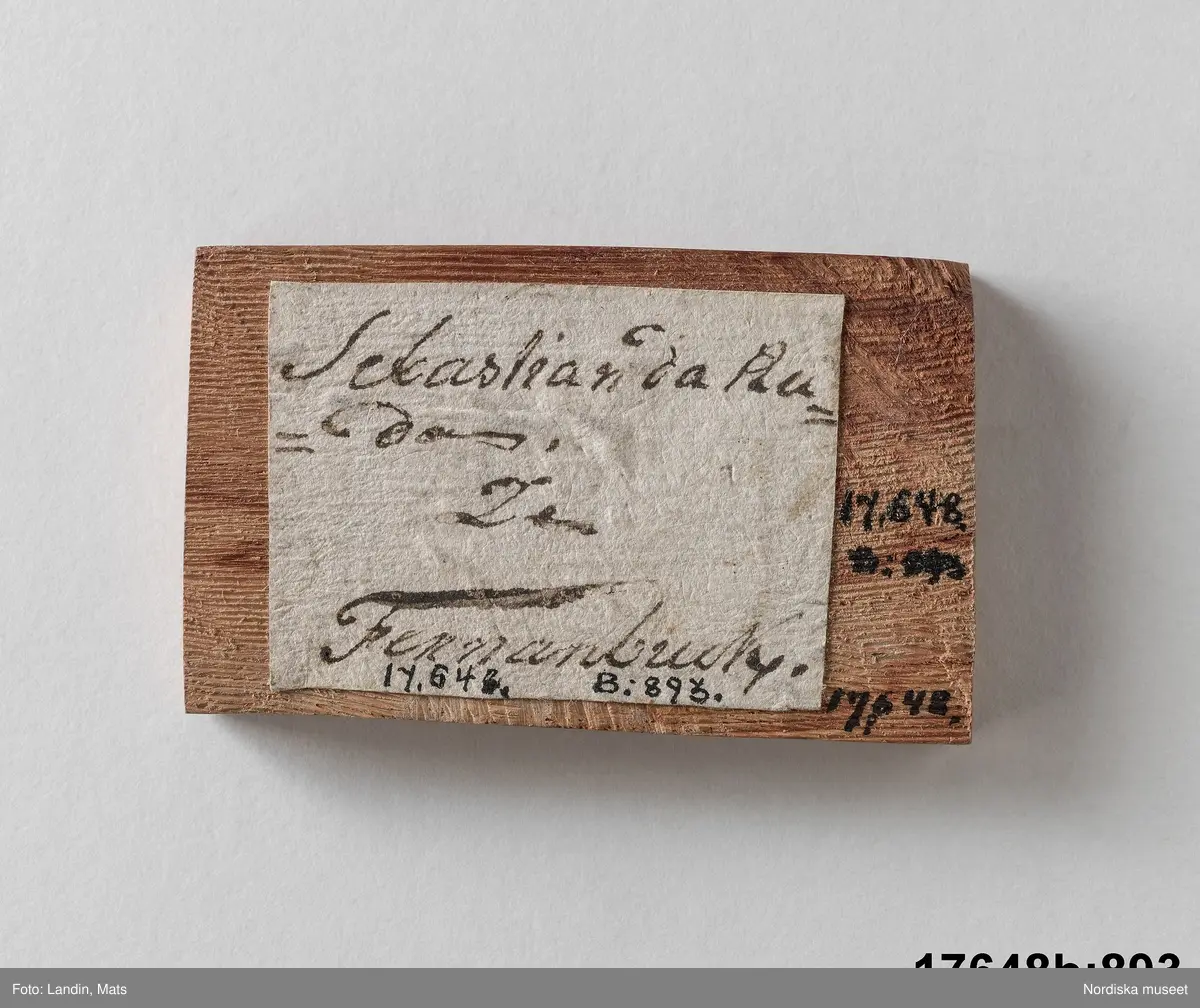 Sebastian da Ru=
=das.
Ze
Fernanbuck.
17,648. B:893.
17,648.
B:893
17,648.
17648b:893
Foto: Landin, Mats
Nordiska museet